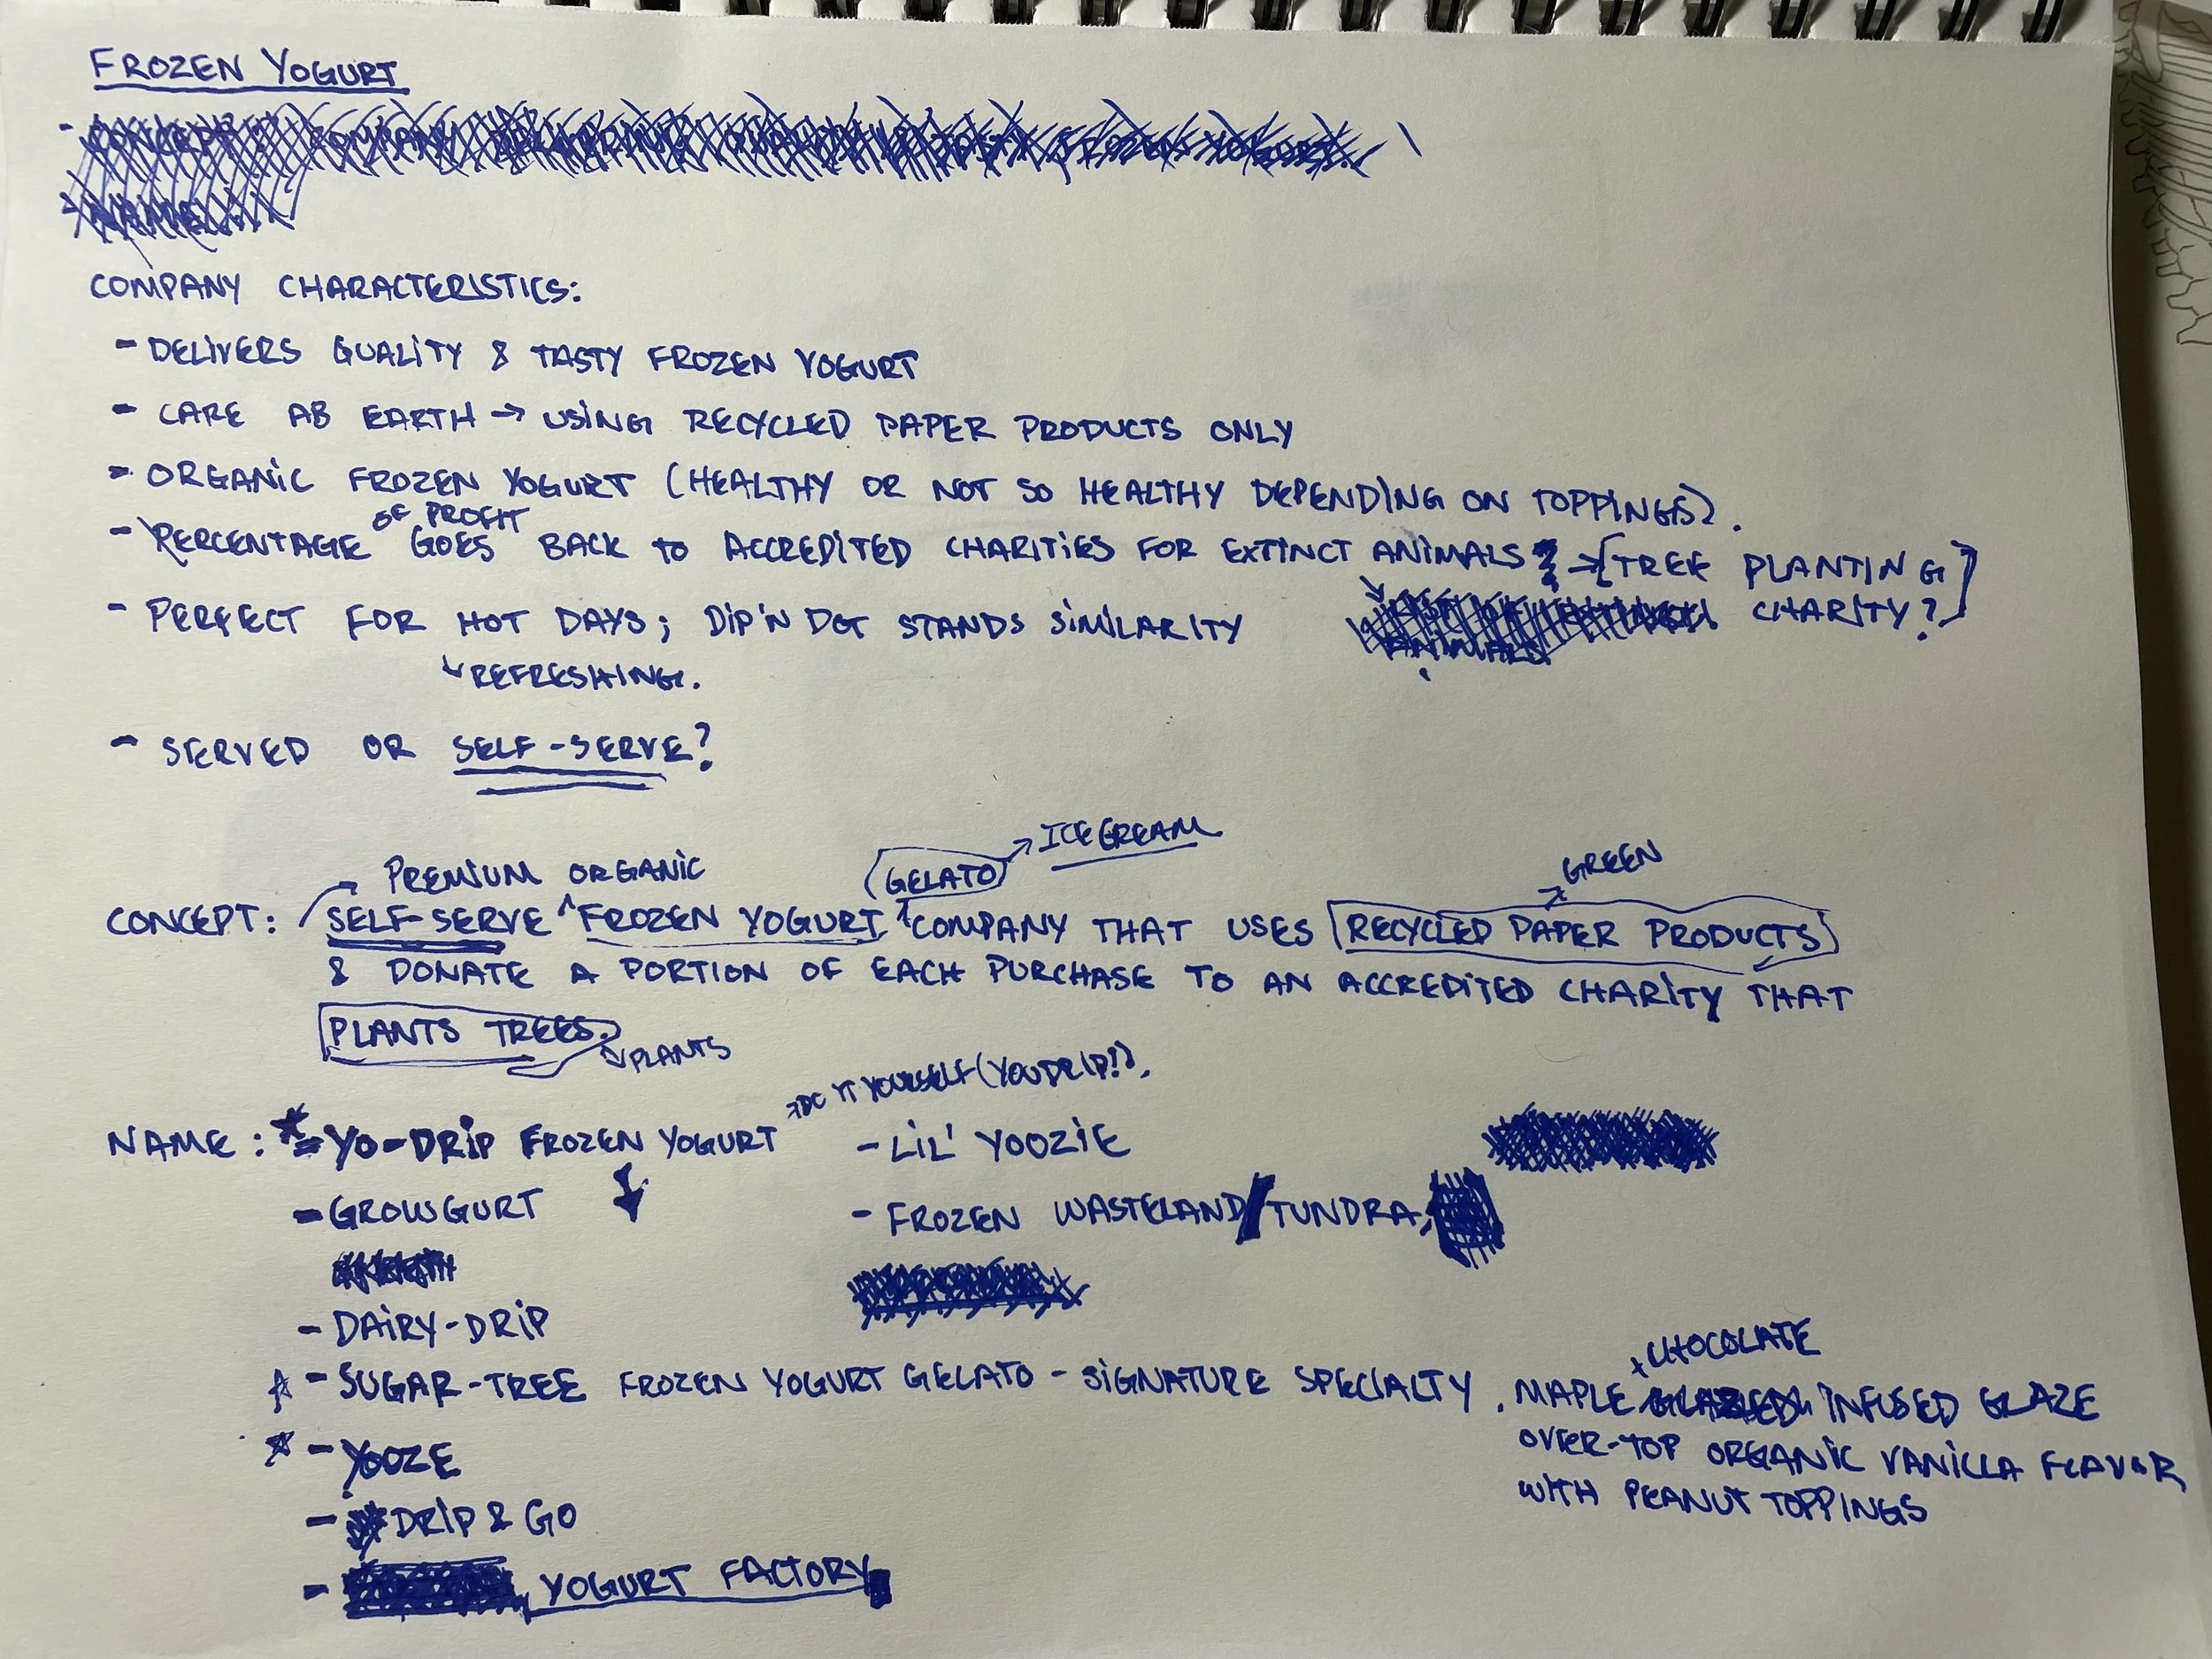 FROZEN YOGURT
COMPANY CHARACTERISTICS:
- DELIVERS QUALITY & TASTY FROZEN YOGURT
- CARE AB EARTH → USING RECYCLED PAPER PRODUCTS ONLY
- ORGANIC FROZEN YOGURT (HEALTHY OR NOT SO HEALTHY DEPENDING ON TOPPINGS).
OF PROFIT
- PERCENTAGE GOES BACK TO ACCREDITED CHARITIES FOR EXTINCT ANIMALS → [TREE PLANTING
CHARITY?]
- PERFECT FOR HOT DAYS; DIP'N DOT STANDS SIMILARITY
↳ REFRESHING.
- SERVED OR SELF-SERVE?
PREMIUM ORGANIC (GELATO) → ICE CREAM
GREEN
CONCEPT: SELF-SERVE ^ FROZEN YOGURT ^ COMPANY THAT USES RECYCLED PAPER PRODUCTS
& DONATE A PORTION OF EACH PURCHASE TO AN ACCREDITED CHARITY THAT
PLANTS TREES.
↳ PLANTS
→ DO IT YOURSELF (YOU DRIP!).
NAME: * - YO-DRIP FROZEN YOGURT
- GROWGURT
- DAIRY-DRIP
☆ - SUGAR-TREE FROZEN YOGURT GELATO - SIGNATURE SPECIALTY. MAPLE + CHOCOLATE INFUSED GLAZE
OVER-TOP ORGANIC VANILLA FLAVOR
WITH PEANUT TOPPINGS
☆ - YOOZE
- DRIP & GO
- YOGURT FACTORY
- LIL' YOOZIE
- FROZEN WASTELAND/TUNDRA